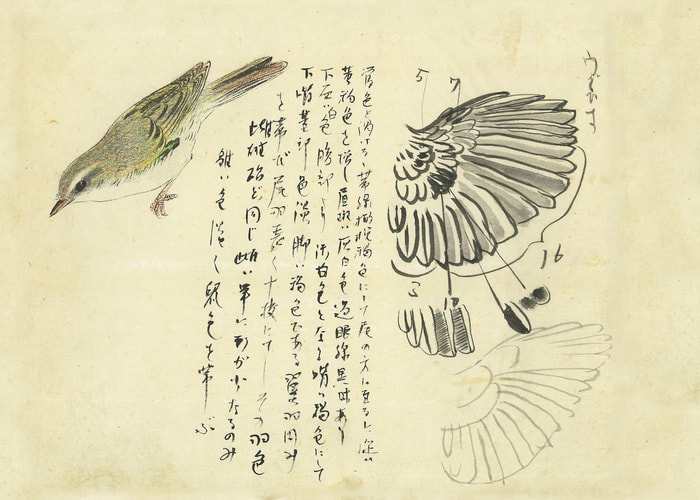 うぐひす
5
7
16
3
帯緑橄欖褐色にして尾の方に至るに従い
黄褐色を増し眉斑は灰白色 過眼線黒味あり
下面は白色 腹部より 汚白色となる 嘴は褐色にして
下嘴基部色淡 脚は褐色である
を帯び 尾羽 く十枚にてしその羽色
雌雄殆ど同じ 雌は単に形が少なるのみ
雛は色淡く鼠色を帯ぶ